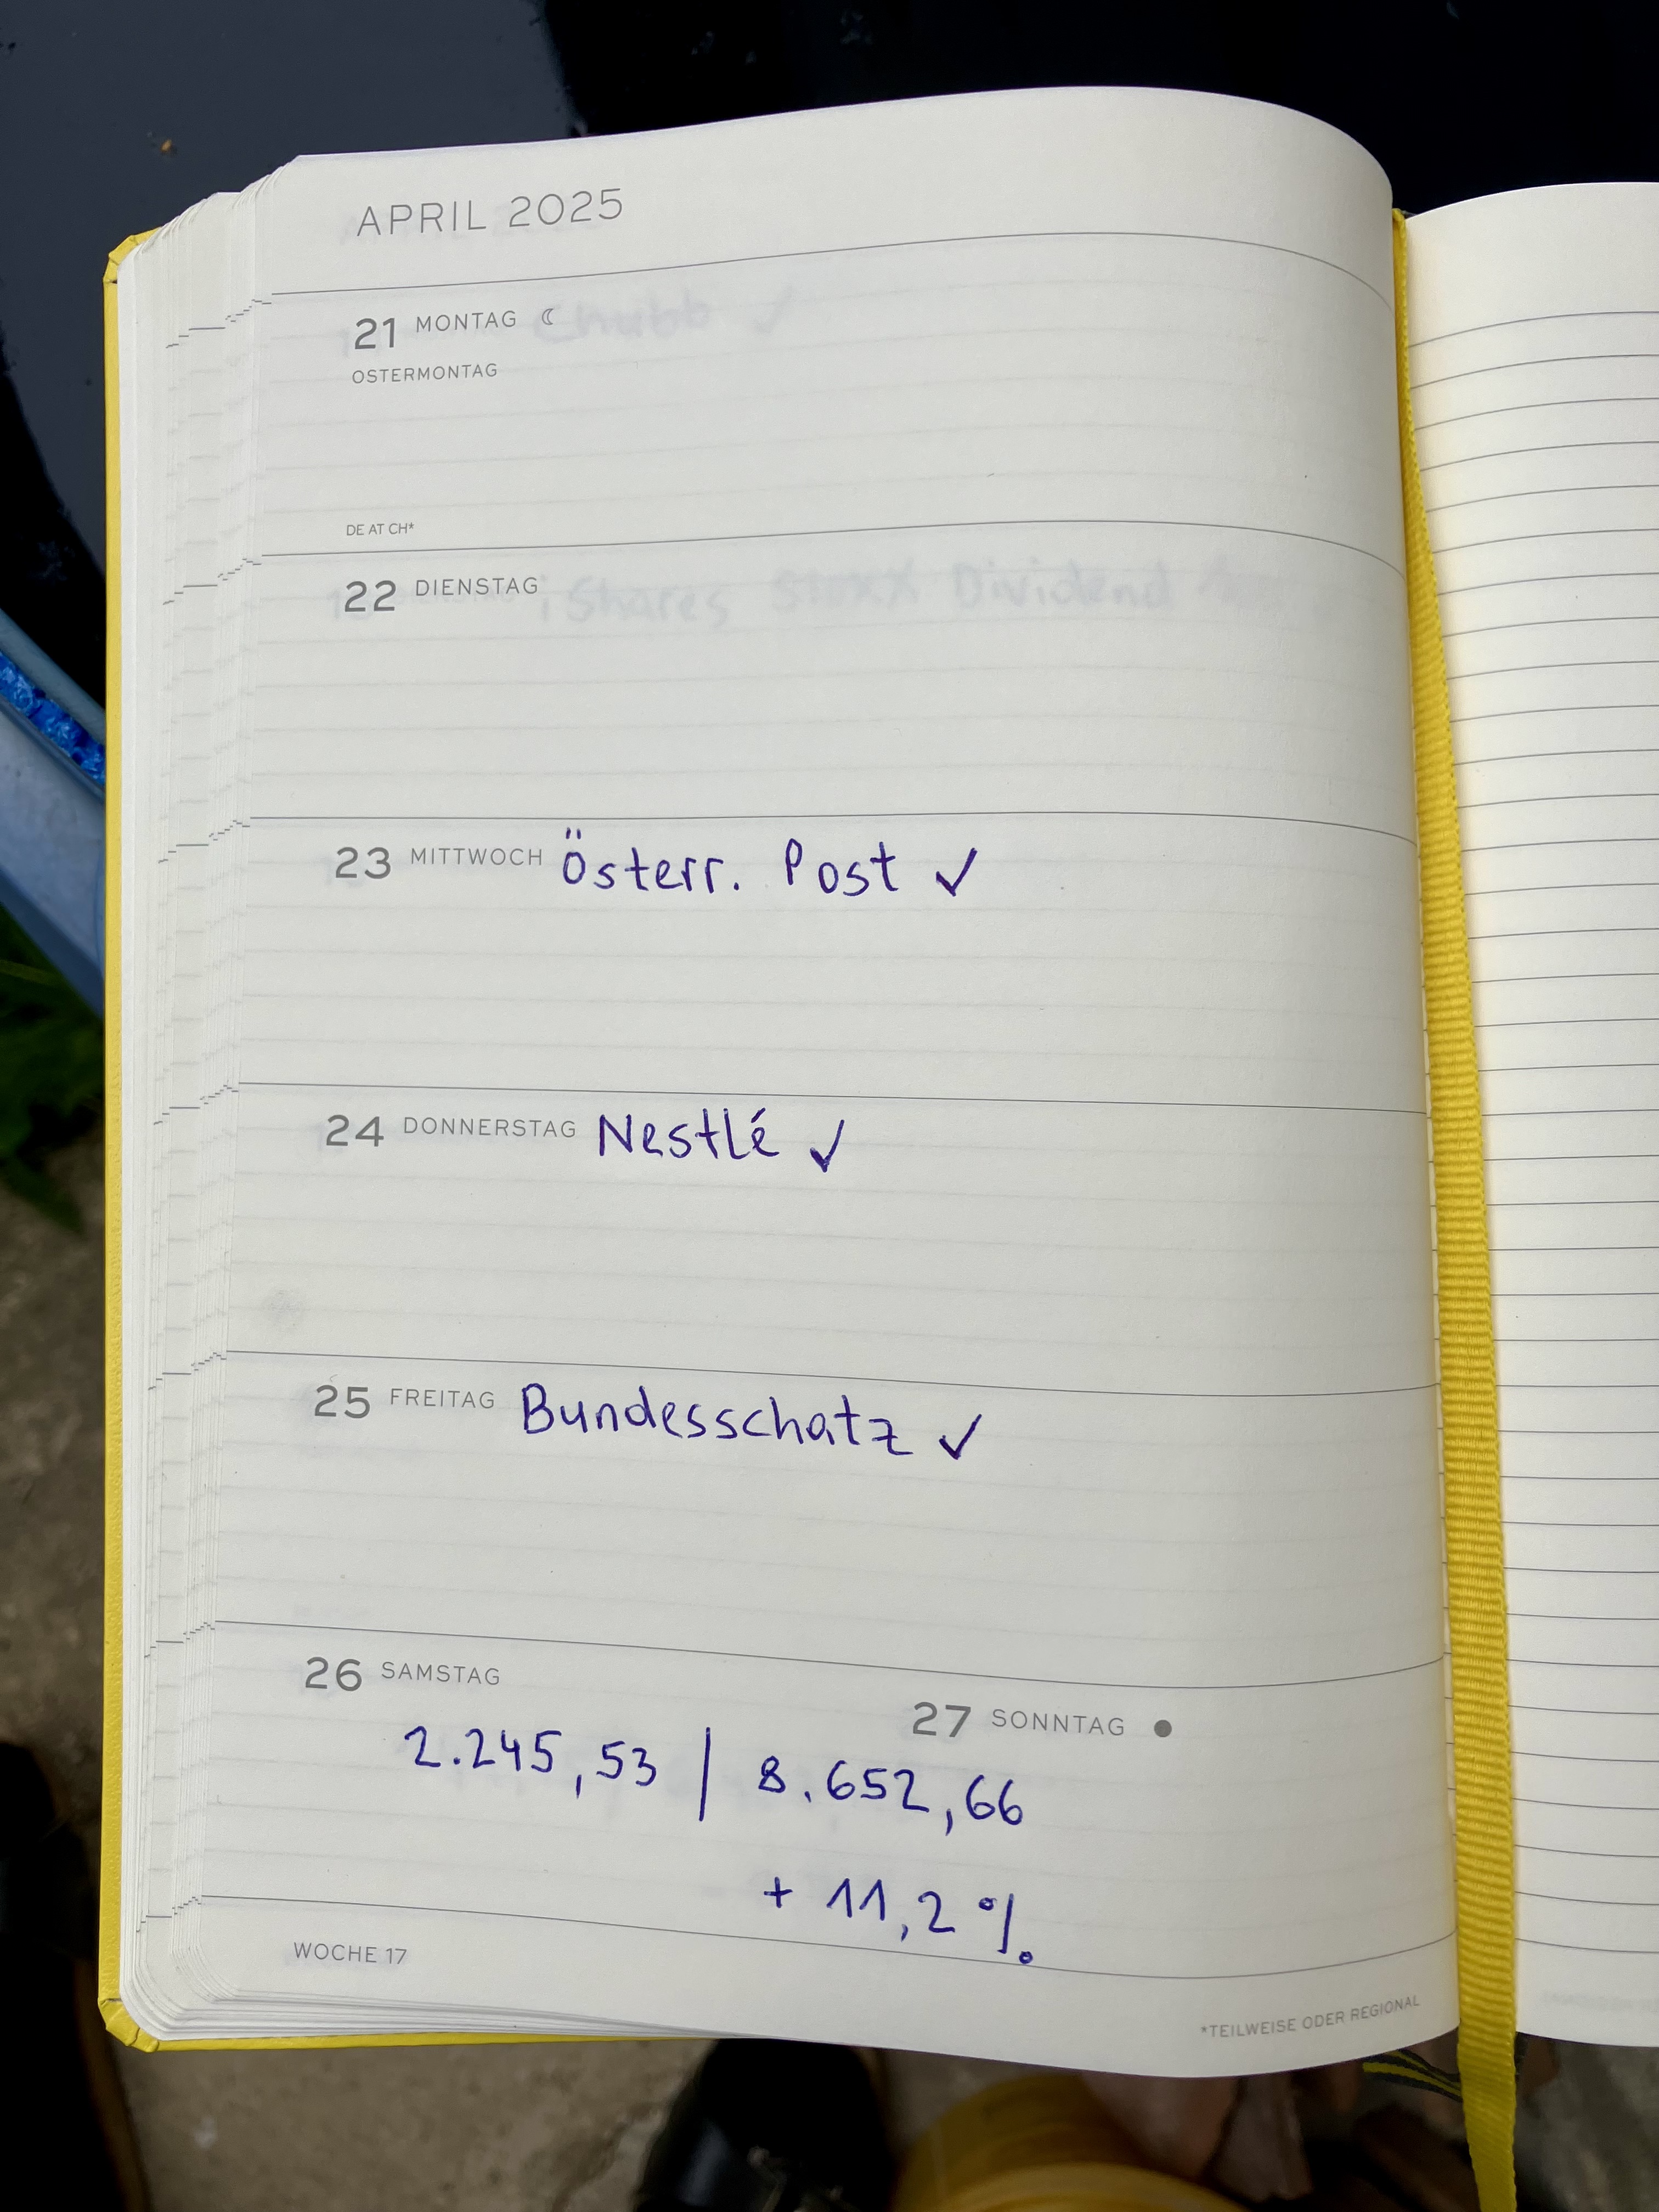 APRIL 2025
21 MONTAG
Chubb ✓
OSTERMONTAG
DE AT CH*
22 DIENSTAG
iShares Stoxx Dividend
23 MITTWOCH Österr. Post ✓
24 DONNERSTAG Nestlé ✓
25 FREITAG Bundesschatz ✓
26 SAMSTAG
27 SONNTAG
2.245,53 | 8.652,66
+ 11,2 %
WOCHE 17
*TEILWEISE ODER REGIONAL